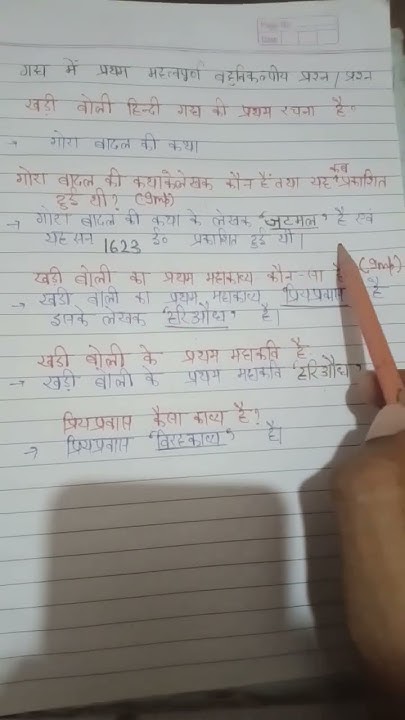 गद्य में प्रथम महत्वपूर्ण बहुविकल्पीय प्रश्न / प्रश्न
खड़ी बोली हिन्दी गद्य की प्रथम रचना है।
→ गोरा बादल की कथा
गोरा बादल की कथा के लेखक कौन हैं तथा यह कब प्रकाशित
हुई थी? (Imp)
→ गोरा बादल की कथा के लेखक "जटमल" है एवं
यह सन 1623 ई० प्रकाशित हुई थी।
खड़ी बोली का प्रथम महाकाव्य कौन-सा है (Imp)
→ खड़ी बोली का प्रथम महाकाव्य प्रियप्रवास है
इसके लेखक "हरिऔध" है।
खड़ी बोली के प्रथम महाकवि है
→ खड़ी बोली के प्रथम महाकवि 'हरिऔध'
प्रियप्रवास कैसा काव्य है?
→ प्रियप्रवास "विरहकाव्य" है।